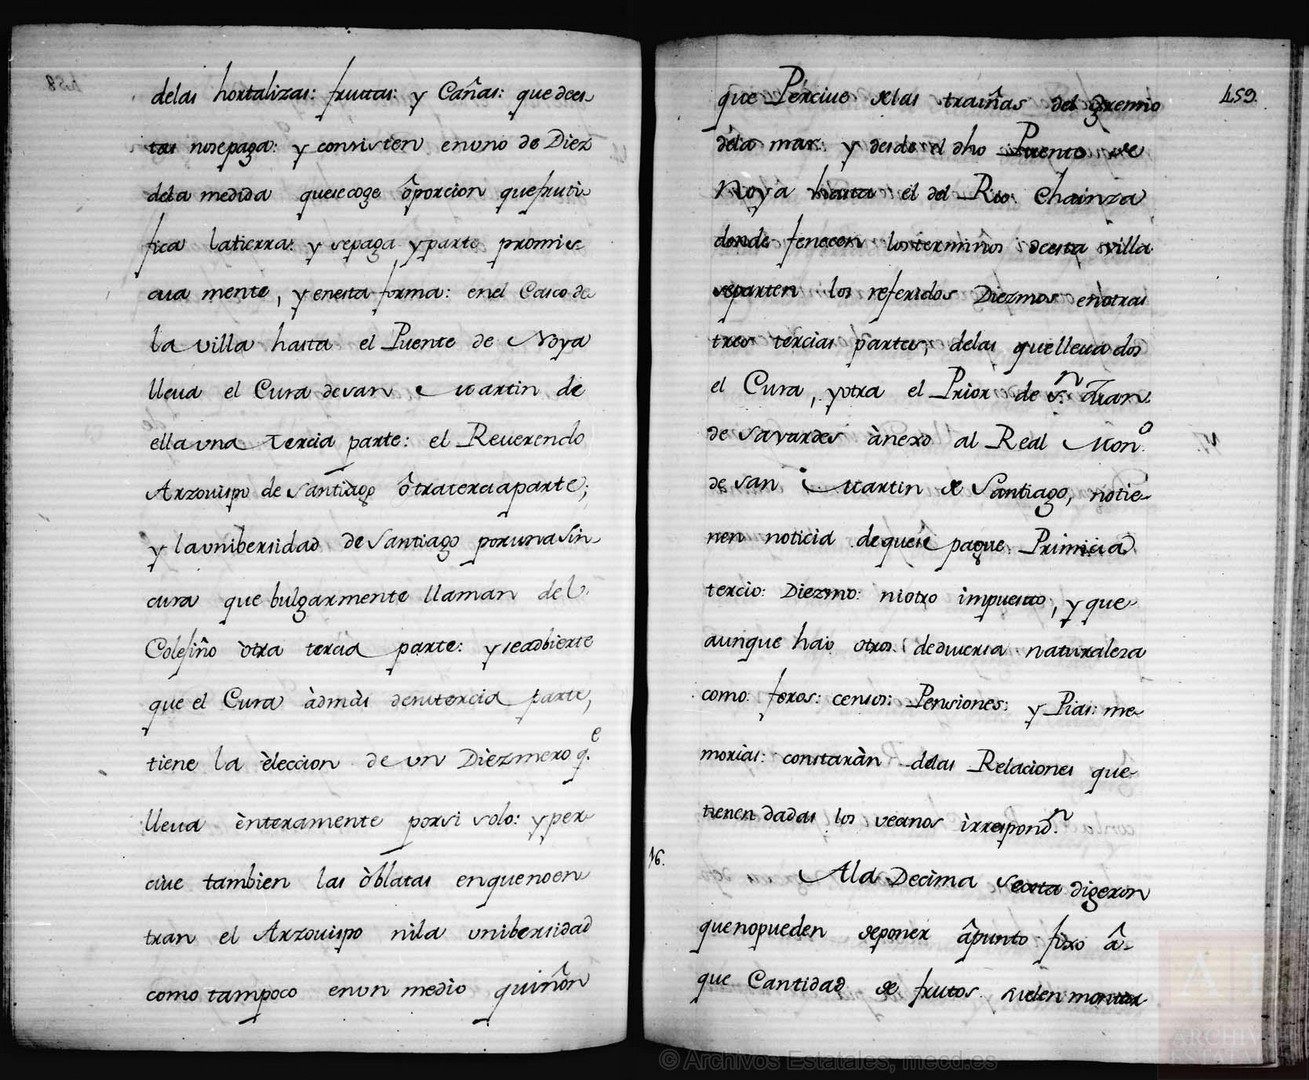 delas hortalizas: fruttas: y Cañas: que dees-
tas nosepaga: y consisten enuno de Diez
dela medida quesecoge ôporcion quefruti-
fica latierra: y sepaga yparte promis-
cua mente, y enesta forma: enel Casco de
la villa hasta el Puente de Noya
lleua el Cura desan Martin de
ella vna tercia parte: el Reuerendo
Arzouispo de Santiago ôtraterciaparte;
y launibersidad de Santiago porunasin-
cura que bulgarmente llaman del
Colesiño òtra tercia parte: yseadbierte
que el Cura àdmàs desutercia parte,
tiene la èleccion de un Dièzmero q.e
lleua ènteramente porsi solo: yper-
ciue tambien las òblatas enquenoen
tran el Arzouispo nila unibersidad
como tampoco enun medio quiñôn
459.
que Perciue delas traiñas del gremio
dela mar: y desde el dho Puente de
Noya hasta el del Rio Chainza
donde fenecen losterminos deesta villa
separten los referidos Diezmos enotras
tres tercias partes; delas quelleua dos
el Cura, yotra el Prior de sn. Juan.
de Savardes ànexo al Real Mono.
de San Martin de Santiago, notie-
nen noticia dequese pague Primicia
tercio: Diezmo: niotro impuesto, y que
aunque hai otros dediuersa naturaleza
como: foros: censos: Pensiones: y Pias: me-
morias: constaràn delas Relaciones que
tienen dadas los vecinos ìrrespond.n
16.
Ala Decima Sexta digeron
quenopueden deponer âpunto fixo â-
que Cantidad de frutos suelen montar
© Archivos Estatales, mecd.es